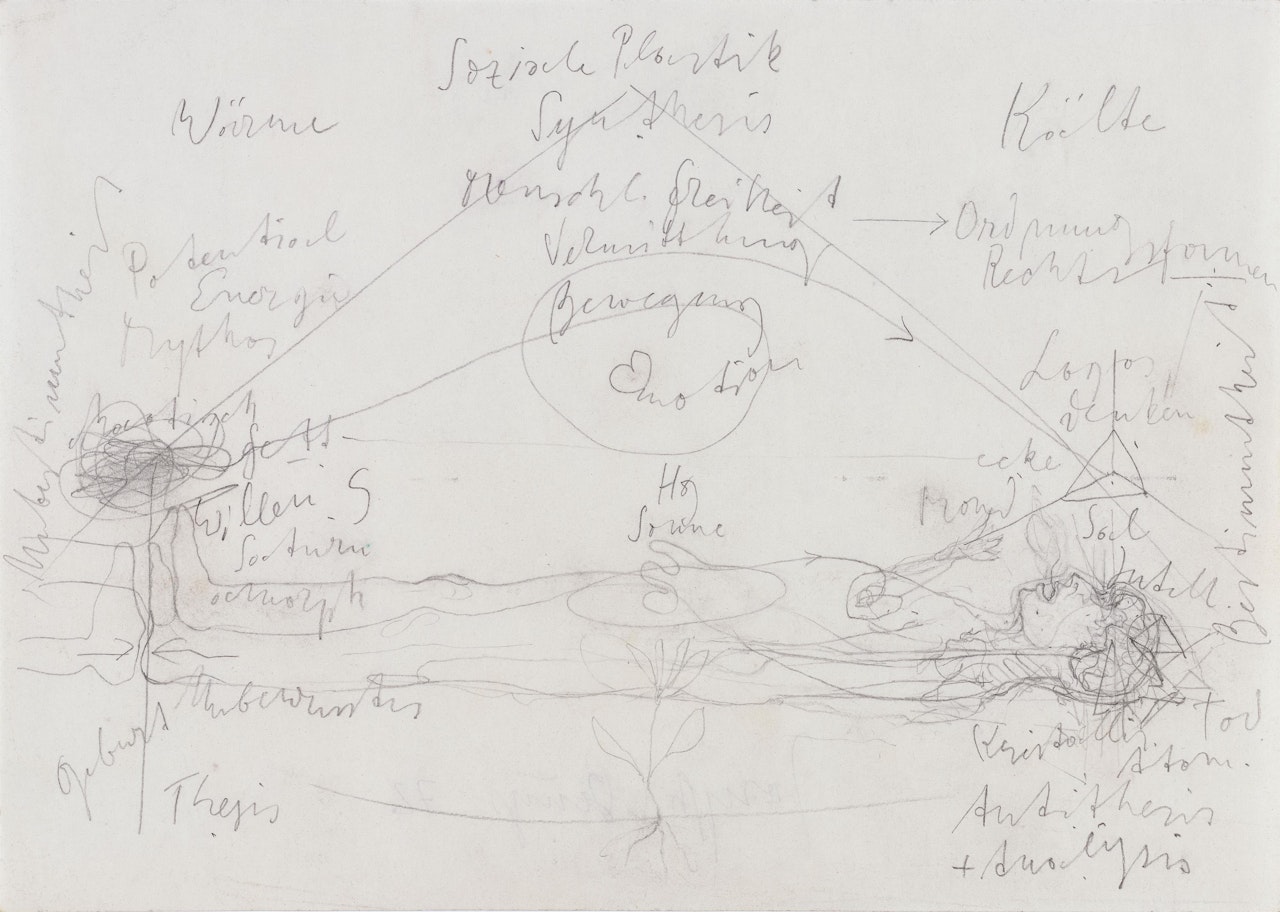 Soziale Plastik
Synthesis
Wärme
Kälte
Menschl. Freiheit
Vermittlung
Bewegung
Emotion
Ordnung
Rechtsformen
Unbestimmtheit
Potential
Energie
Mythos
chaotisch
Fett
Willen
Saturn
Hg
Sonne
Logos
Denken
ecke
Mond
Sal
Intell.
Bestimmtheit
Unbewusstes
Geburt
Thesis
Kristallin
Tod
Atom.
Antithesis
+ Analysis